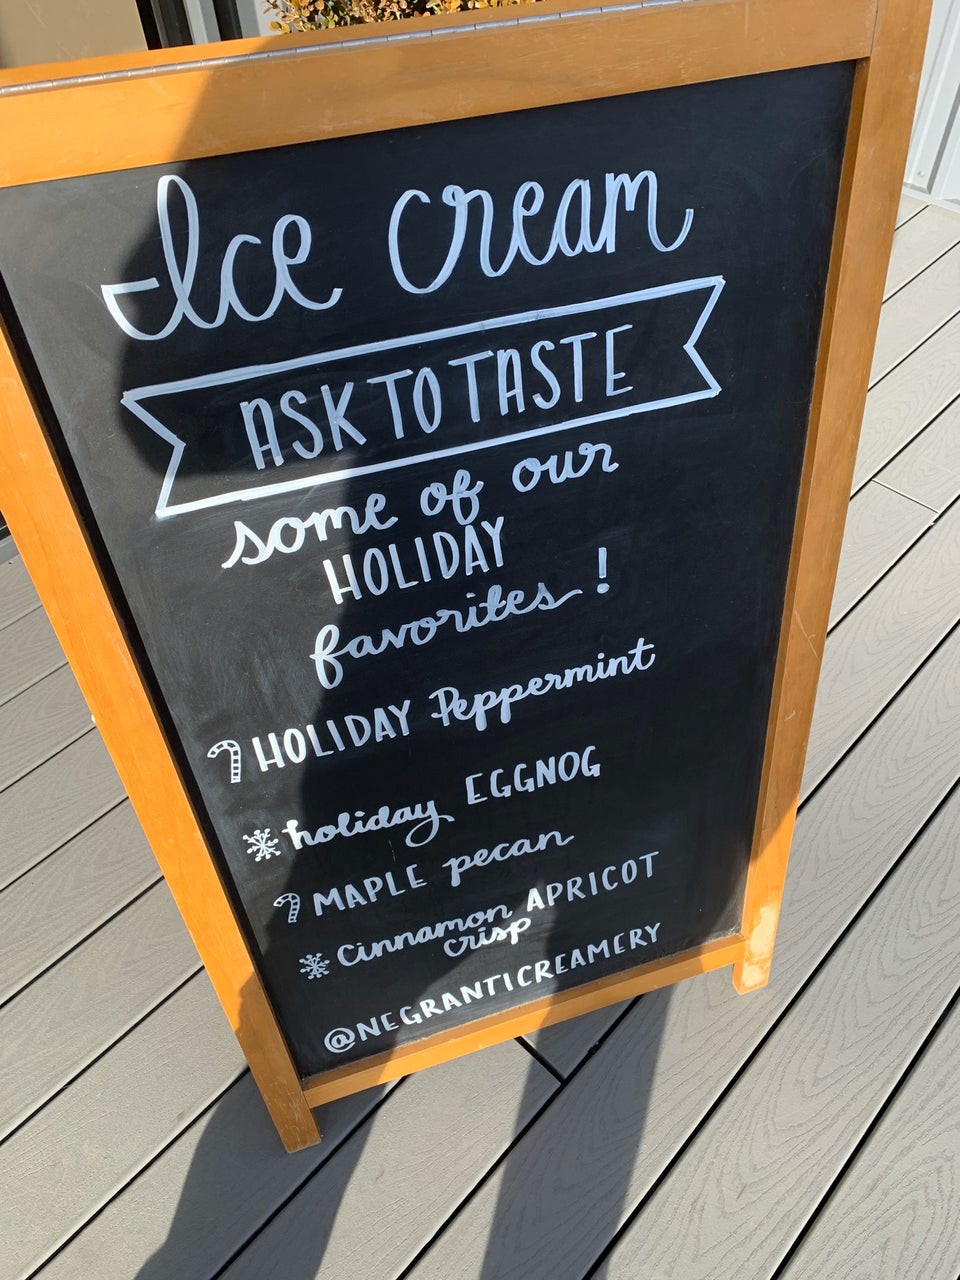 Ice cream
ASK TO TASTE
some of our
HOLIDAY
favorites!
HOLIDAY Peppermint
holiday EGGNOG
MAPLE pecan
Cinnamon APRICOT
crisp
@NEGRANTICREAMERY